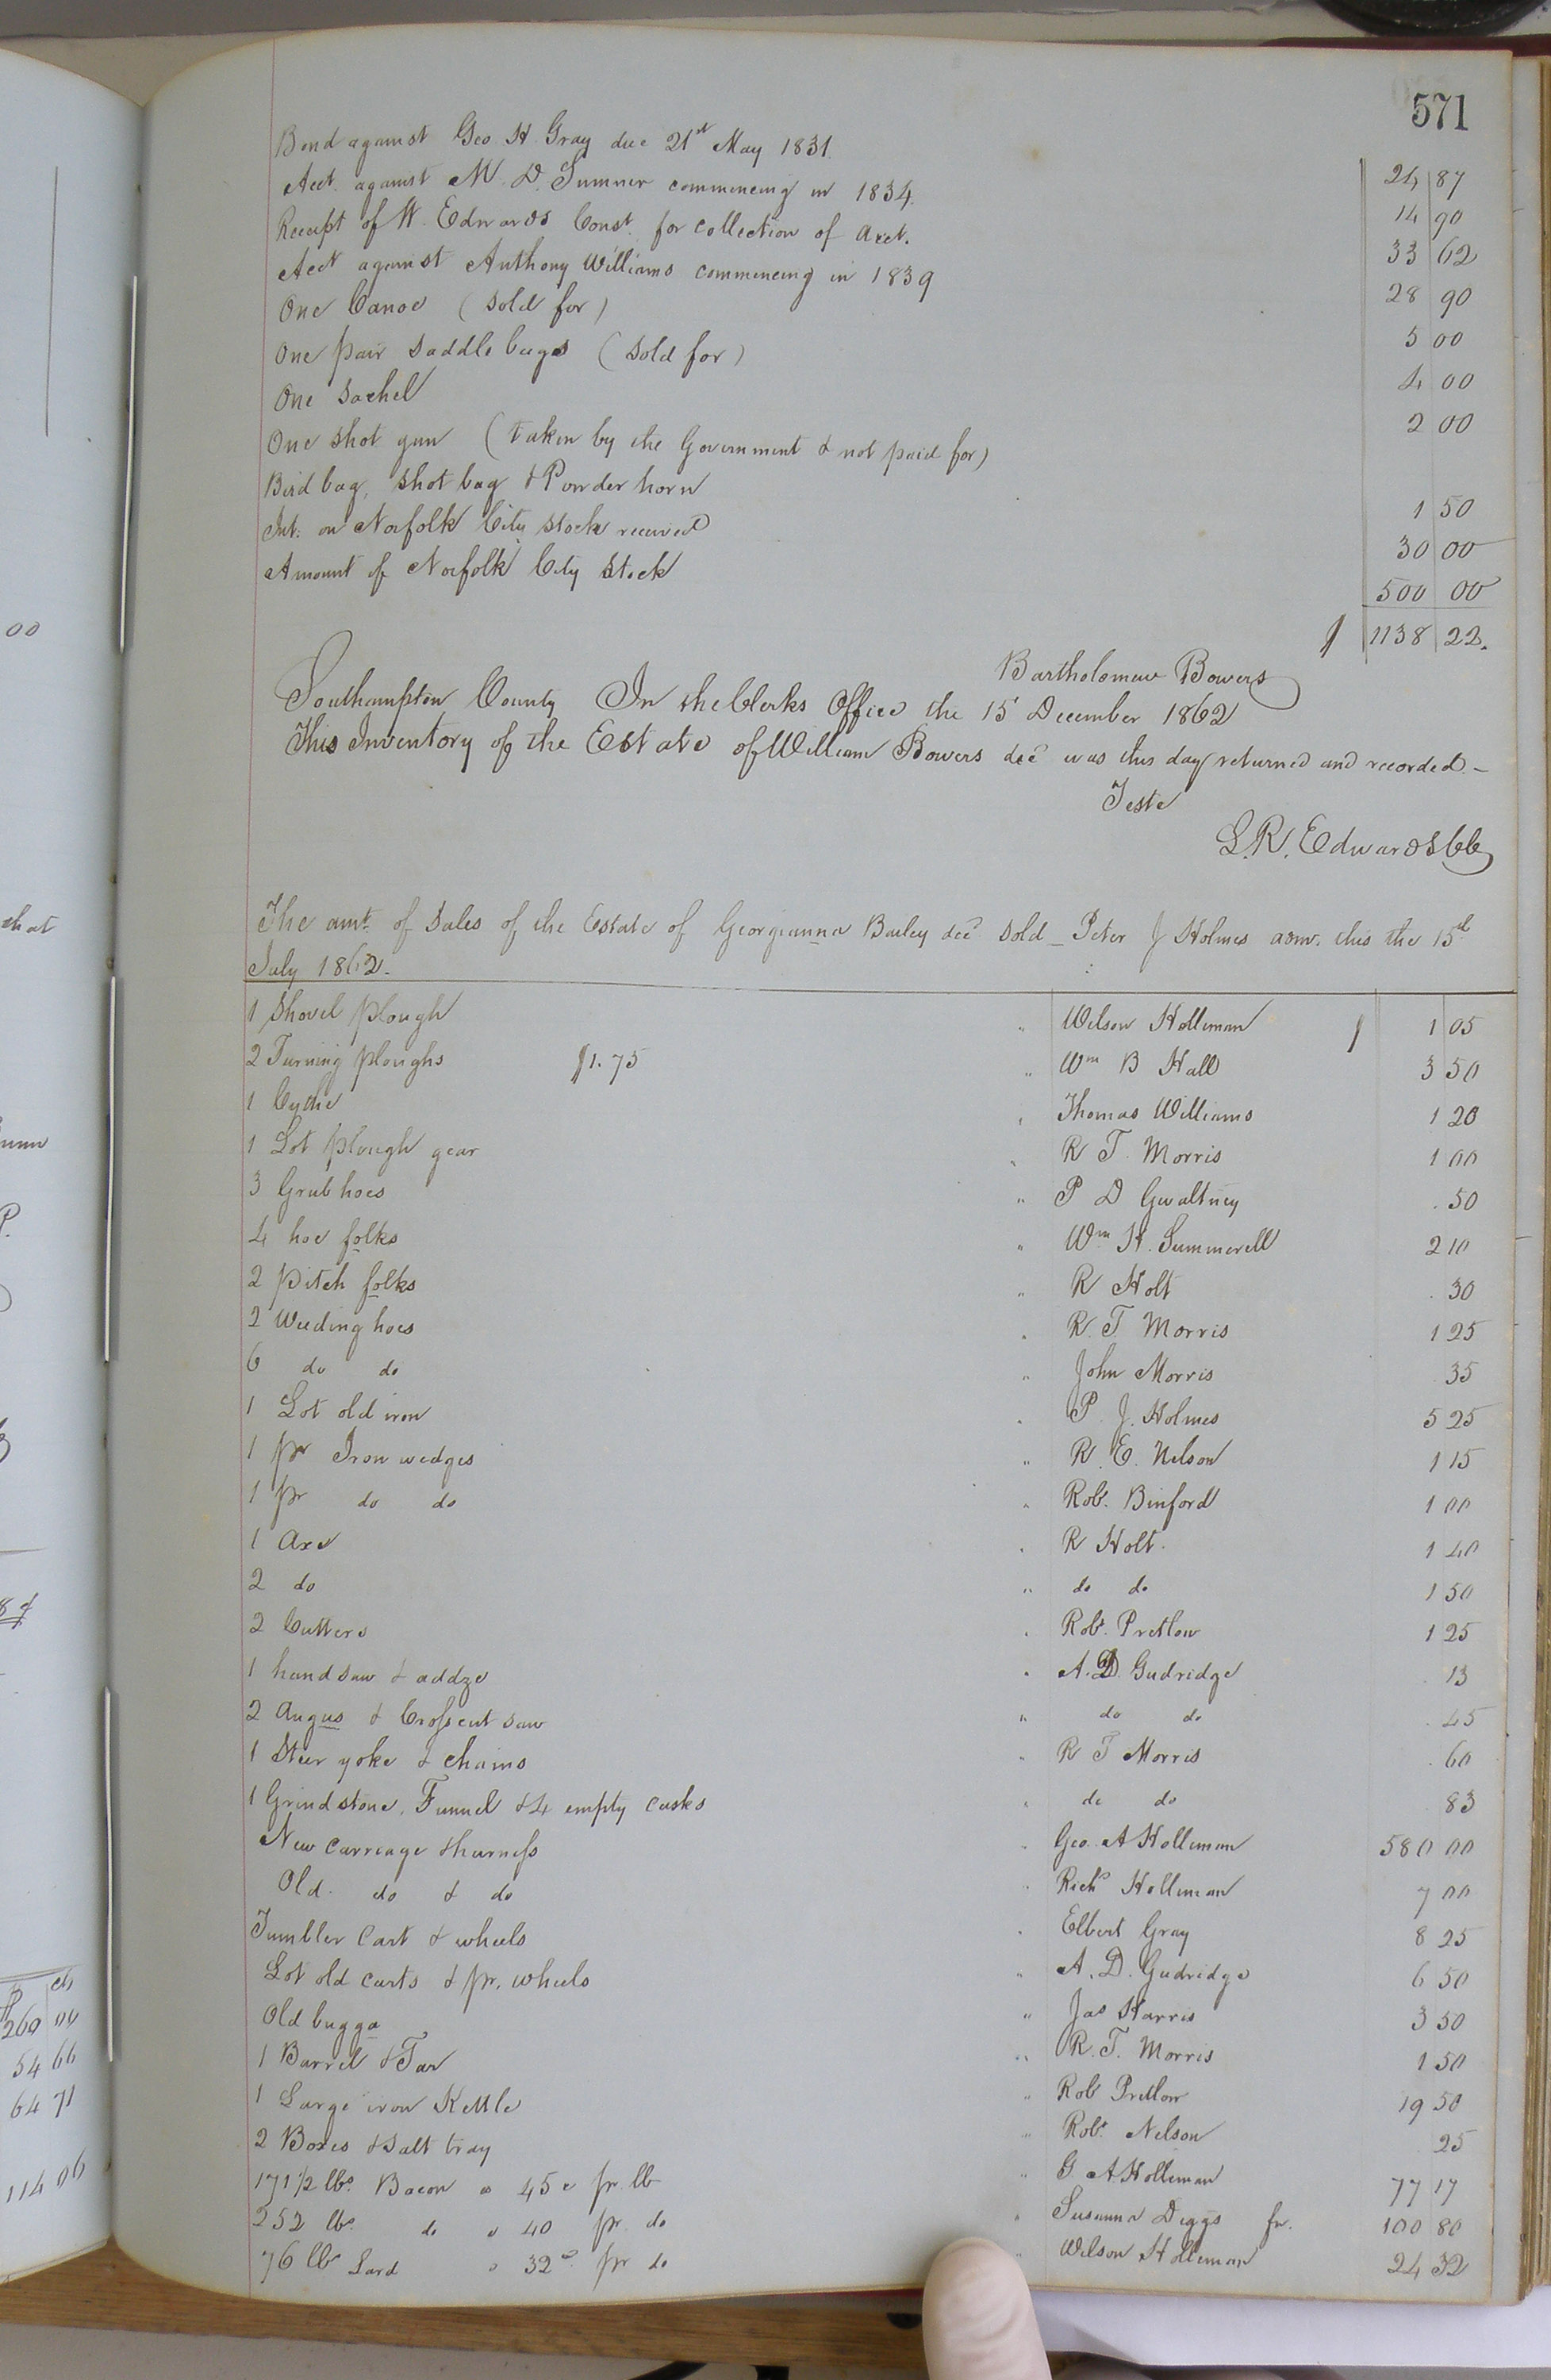 571
Bond against Geo. H. Gray due 21st May 1831. 24 87
Acct. against M. D. Sumner commencing in 1834. 14 90
Receipt of W. Edwards Const. for collection of acct. 33 62
Acct against Anthony Williams commencing in 1839 28 90
One Canoe (sold for) 5 00
One pair saddle bags (sold for) 4 00
One sachel 2 00
One shot gun (taken by the Government & not paid for)
Bird bag, shot bag & Powder horn 1 50
Int: on Norfolk City stock received 30 00
Amount of Norfolk City stock 500 00
$ 1138 22.
Bartholomew Bowers
Southampton County In the Clerks Office the 15 December 1862
This Inventory of the Estate of William Bowers decd was this day returned and recorded. -
Teste
L. R. Edwards CC
The amt. of Sales of the Estate of Georgianna Bailey decd sold - Peter J Holmes admr. this the 15th
July 1862.
1 Shovel plough " Wilson Holleman $ 1 05
2 Turning ploughs $1.75 " Wm B Hall 3 50
1 Cythe " Thomas Williams 1 20
1 Lot plough gear " R T. Morris 1 00
3 Grub hoes " P D Gwaltney . 50
4 hoe folks " Wm H. Summerell 2 10
2 pitch folks " R Holt . 30
2 Weeding hoes " R. T Morris 1 25
6 do do " John Morris 35
1 Lot old iron " P. J. Holmes 5 25
1 pr Iron wedges " R. E. Nelson 1 15
1 pr do do " Rob. Binford 1 00
1 Axe " R Holt. 1 40
2 do " do do 1 50
2 Cutters " Robt. Pretlow 1 25
1 handsaw & addze " A. D. Gudridge . 13
2 Augus & Crosscut saw " do do . 45
1 Steer yoke & chains " R T Morris . 60
1 Grindstone, Funnel & 4 empty casks " do do . 83
New carreage & harness " Geo. A Holleman 580 00
Old do & do " Richd Holleman 7 00
Tumbler Cart & wheels " Elbert Gray 8 25
Lot old carts & pr. wheels " A. D. Gudridge 6 50
Old bugga " Jas Harris 3 50
1 Barrel & Tar " R. T. Morris 1 50
1 Large iron Kettle " Rob Pretlow 19 50
2 Boxes & salt tray " Robt. Nelson 25
171 1/2 lbs. Bacon a 45 c pr. lb " G. A Holleman 77 17
252 lbs. do a 40 pr. do " Susanna Diggs fr. 100 80
76 lb Lard a 32 c pr do " Wilson Holleman 24 32